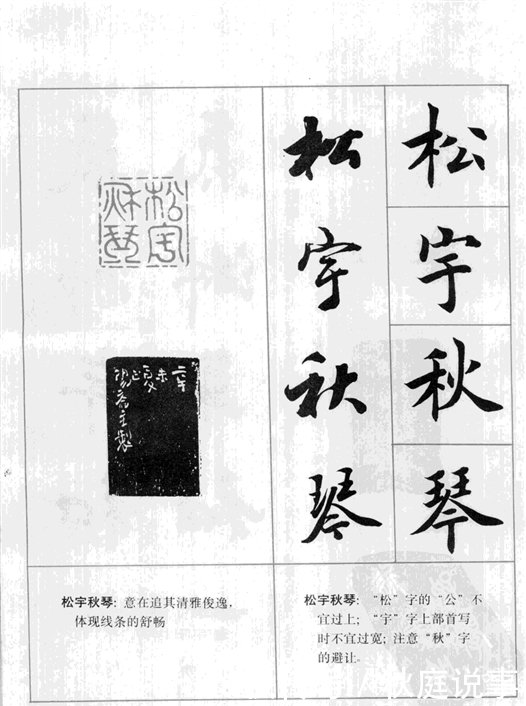 松宇秋琴
松宇秋琴
松宇秋琴
松宇秋琴：意在追其清雅俊逸，
体现线条的舒畅
松宇秋琴：“松”字的“公”不
宜过上；“宇”字上部首写
时不宜过宽；注意“秋”字
的避让。
秋庭说事